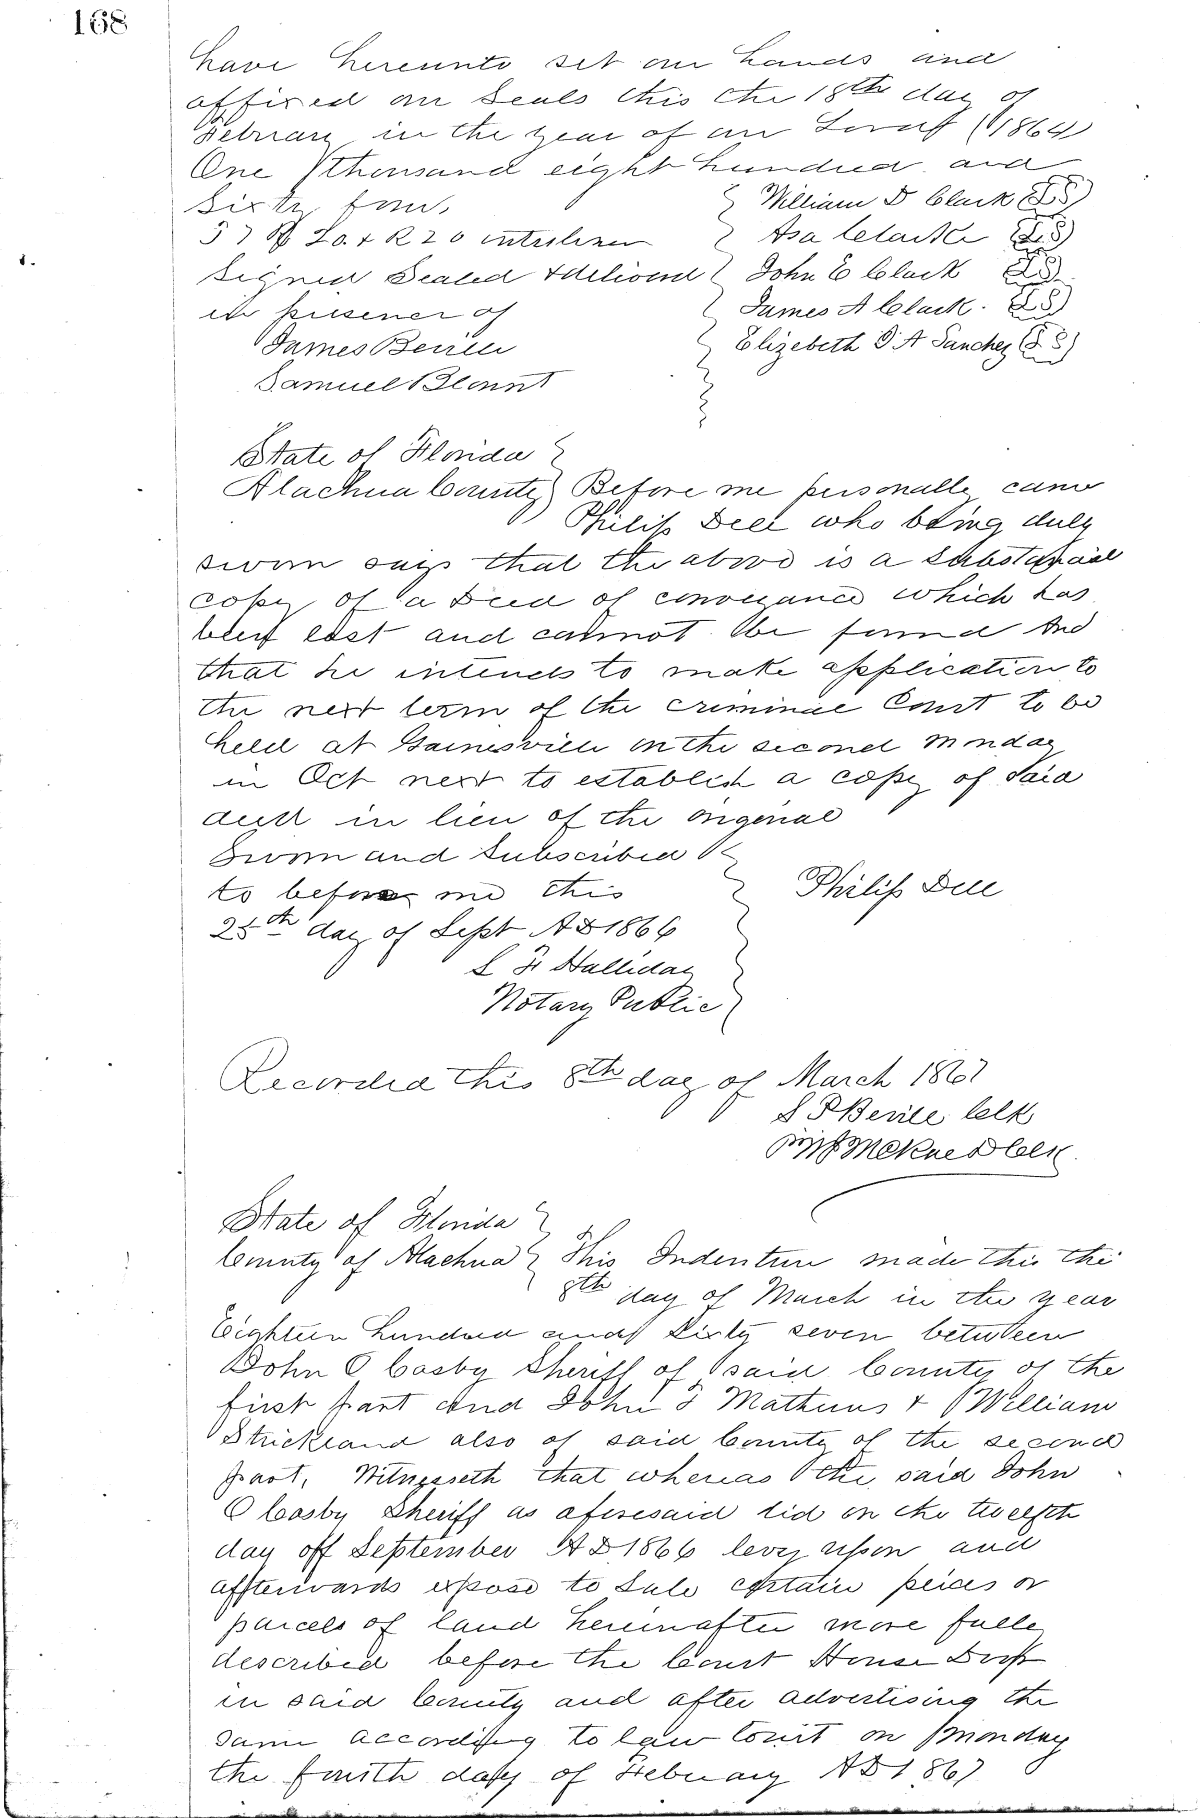 168
have hereunto set our hands and
affixed our seals this the 18th day of
Februrary in the year of our Lord (1864)
One thousand eight hundred and
Sixty four.
William D Clark (LS)
Asa Clarke (LS)
Signed Sealed & delivered John E Clark (LS)
in presence of James A Clark. (LS)
James Beville Elizebeth S A Sanchez (LS)
Samuel Blount
State of Florida
Alachua County Before me personally came
Philip Dell who being duly
sworn says that the above is a substancial
copy of a Deed of conveyance which has
been lost and cannot be found And
that he intends to make application to
the next term of the criminal Court to be
held at Gainesville on the second Monday
in Oct next to establish a copy of said
deed in lieu of the original
Sworn and Subscribed
to before me this Philip Dell
25th day of Sept AD 1866
L F Halliday
Notary Public
Recorded this 8th day of March 1867
S P Beville Clk
D Clk
State of Florida
County of Alachua This Indenture made this the
8th day of March in the year
Eighteen hundred and Sixty seven between
John C Casby Sheriff of said County of the
first part and John F Mathews & William
Strickland also of said County of the second
part, Witnesseth that whereas the said John
C Casby Sheriff as aforesaid did on the twelfth
day off September AD 1866 levy upon and
affterwards expose to Sale certain peices or
parcels of land hereinafter more fully
described before the Court House Door
in said County and after advertising the
same according to law towit on Monday
the fourth day of Februay AD 1867